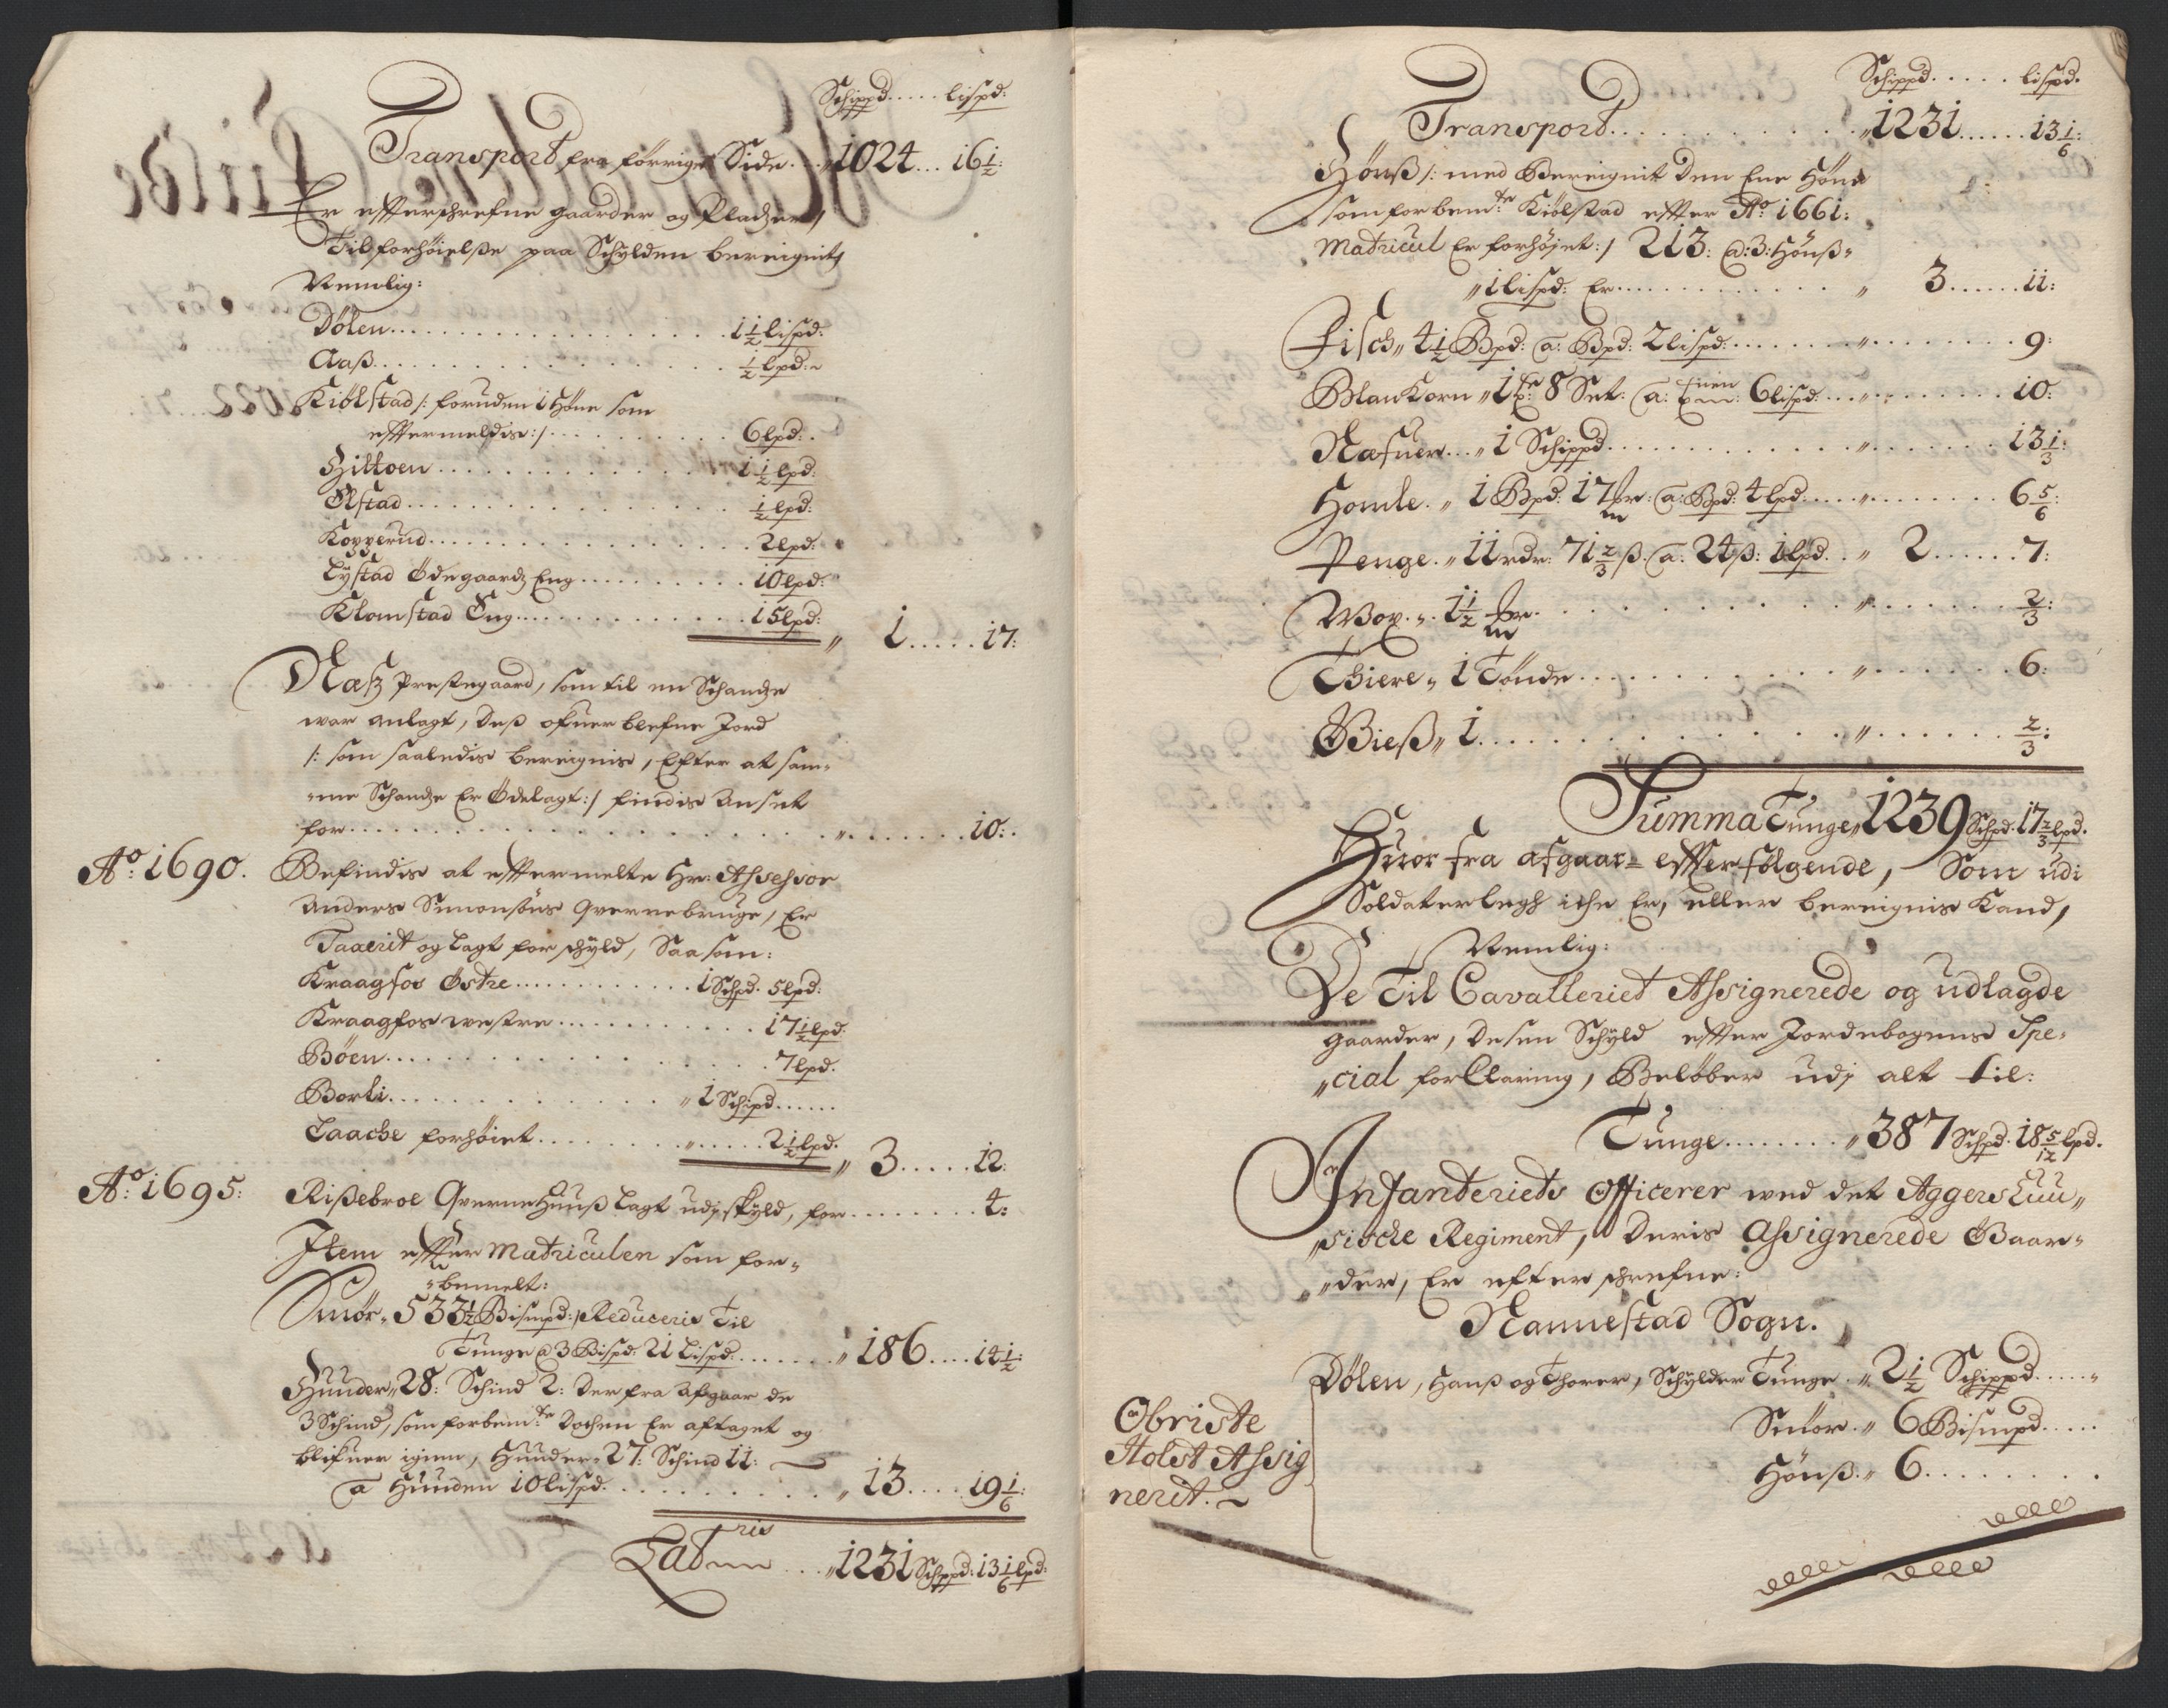 Schippd..... lispd:
Transport fra förrige Side.... 1024... 16 1/2:
Er effterschrefne gaarder og Pladzer,
Til forhöielsse paa Schylden bereignit,
Nemlig:
Dölen.......... 1 1/2 lispd:
Aaß.......... 1/2 lpd:
Kiölstad /: foruden 1 Höne som
efftermeldis :/.......... 6 lpd:
Hilloen.......... 1 1/2 lpd:
Ölstad.......... 1/2 lpd:
Kopperud.......... 2 lpd:
Lystad Ödegaardz Eng.......... 10 lpd:
Klomstad Eng.......... 15 lpd: „ 1..... 17:
Næß Prestegaard, som til en Schandze
war anlagt, dess ofuerblefne Jord
/: som saaledis bereignis, Efter at sam-
-me Schandze Er Ödelagt :/ findis Anset
for.......... „....... 10:
Ao: 1690. Befindis at efftermelte Hr: Assessor
Anders Simonsöns Qvernebruge, Er
Taxerit og Lagt for schyld, Saasom:
Kraagfos Östre.......... 1 Schpd. 5 lpd:
Kraagfos westre.......... 17 1/2 lpd.
Böen.......... 7 lpd.
Borli.......... „ 1 Schipd......
Laache forhöiet.......... „..... 2 1/2 lpd. „ 3..... 12:
Ao: 1695: Rißebroe Qverne Huuß Lagt udj skyld, for........ 4:
Item effter Matriculen som for-
-bemelt:
Smör „ 533 1/2 Bismpd: Reduceris Til
Tunge a 3 Bispd: 21 Lispd:....... „ 186.... 14 1/2:
Huuder „ 28: Schind 2: Der fra afgaar de
3 Schind, som forbemte: Dochen Er aftaget og
blifuer igien, Huuder „ 27: Schind 11:
a Huuden 10 lispd.......... „ 13.... 19 1/6:
Lateris... „ 1231 Schippd: 13 1/6 lpd:
Schippd..... lispd.
Transport.......... „ 1231...... 13 1/6:
Hönß /: med Bereignit den Ene Höne
som forbemte: Kiölstad effter Ao: 1661:
Matricul Er forhöjet :/ 213: a: 3: Hönß „
„ 1 lispd: Er.......... „ 3...... 11:
Fisch „ 4 1/2 Bpd: a: Bpd: 2 lispd:...... „........ 9:
BlanKorn „ 1 8 Set: a: 6 lispd:... „........ 10:
Næfuer... „ 1 Schippd.......... „....... 13 1/3:
Homle. „ 1 Bpd: 17 a: Bpd: 4 lpd..... „........ 6 5/6:
Penge. „ 11 rdr: 71 2/3 ß. a: 24 ß: 1 lpd.. „ 2...... 7:
Wox. „ 1 1/2 .......... „....... 2/3:
Thiere „ 1 Tönde.......... „....... 6:
Gieß „ 1.......... „...... 2/3:
Summa Tunge „ 1239 Schpd. 17 2/3 lpd.
Huor fra afgaar effterfölgende, Som udi
Soldaterlegh iche Er, eller bereignis Kand,
Nemlig:
De Til Cavalleriet Assignerede og udlagde
gaarder, Desen Schyld effter Jordebogens Spe-
„cial forklaring, Belöber udj alt til:
Tunge........ „ 387 Schpd. 18 5/12 lpd.
Infanteriets Officerer wed det Aggers Huu„
„sische Regiment, Deris Assignerede Gaar-
„der, Er effterschrefne:
Nannestad Sogn.
Dölen, Hanß og Thorer, Schylder Tunge. „ 2 1/2 Schippd..... „
Smör. „ 6 Bismpd.....
Hönß. „ 6........
Obriste
Holst Assig
nerit.